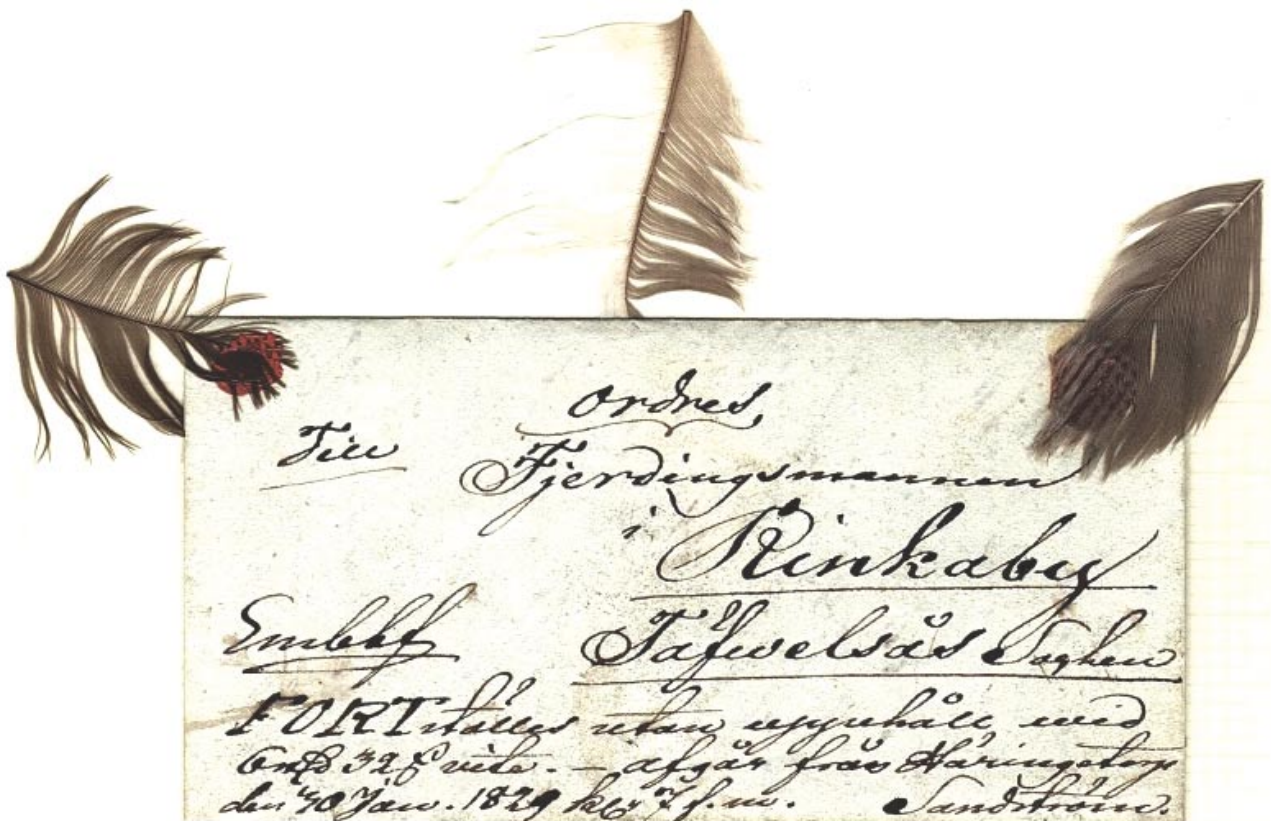 Ordres,
Till Fjerdingsmannen
i Rinkaby
Embtf Täfwelsås Soghen
FORTställes utan uppehåll, wid
6 32 vite. – afgår från Häringetorp
den 30 Jan. 1829 kl. 7 f.m. Sandström.